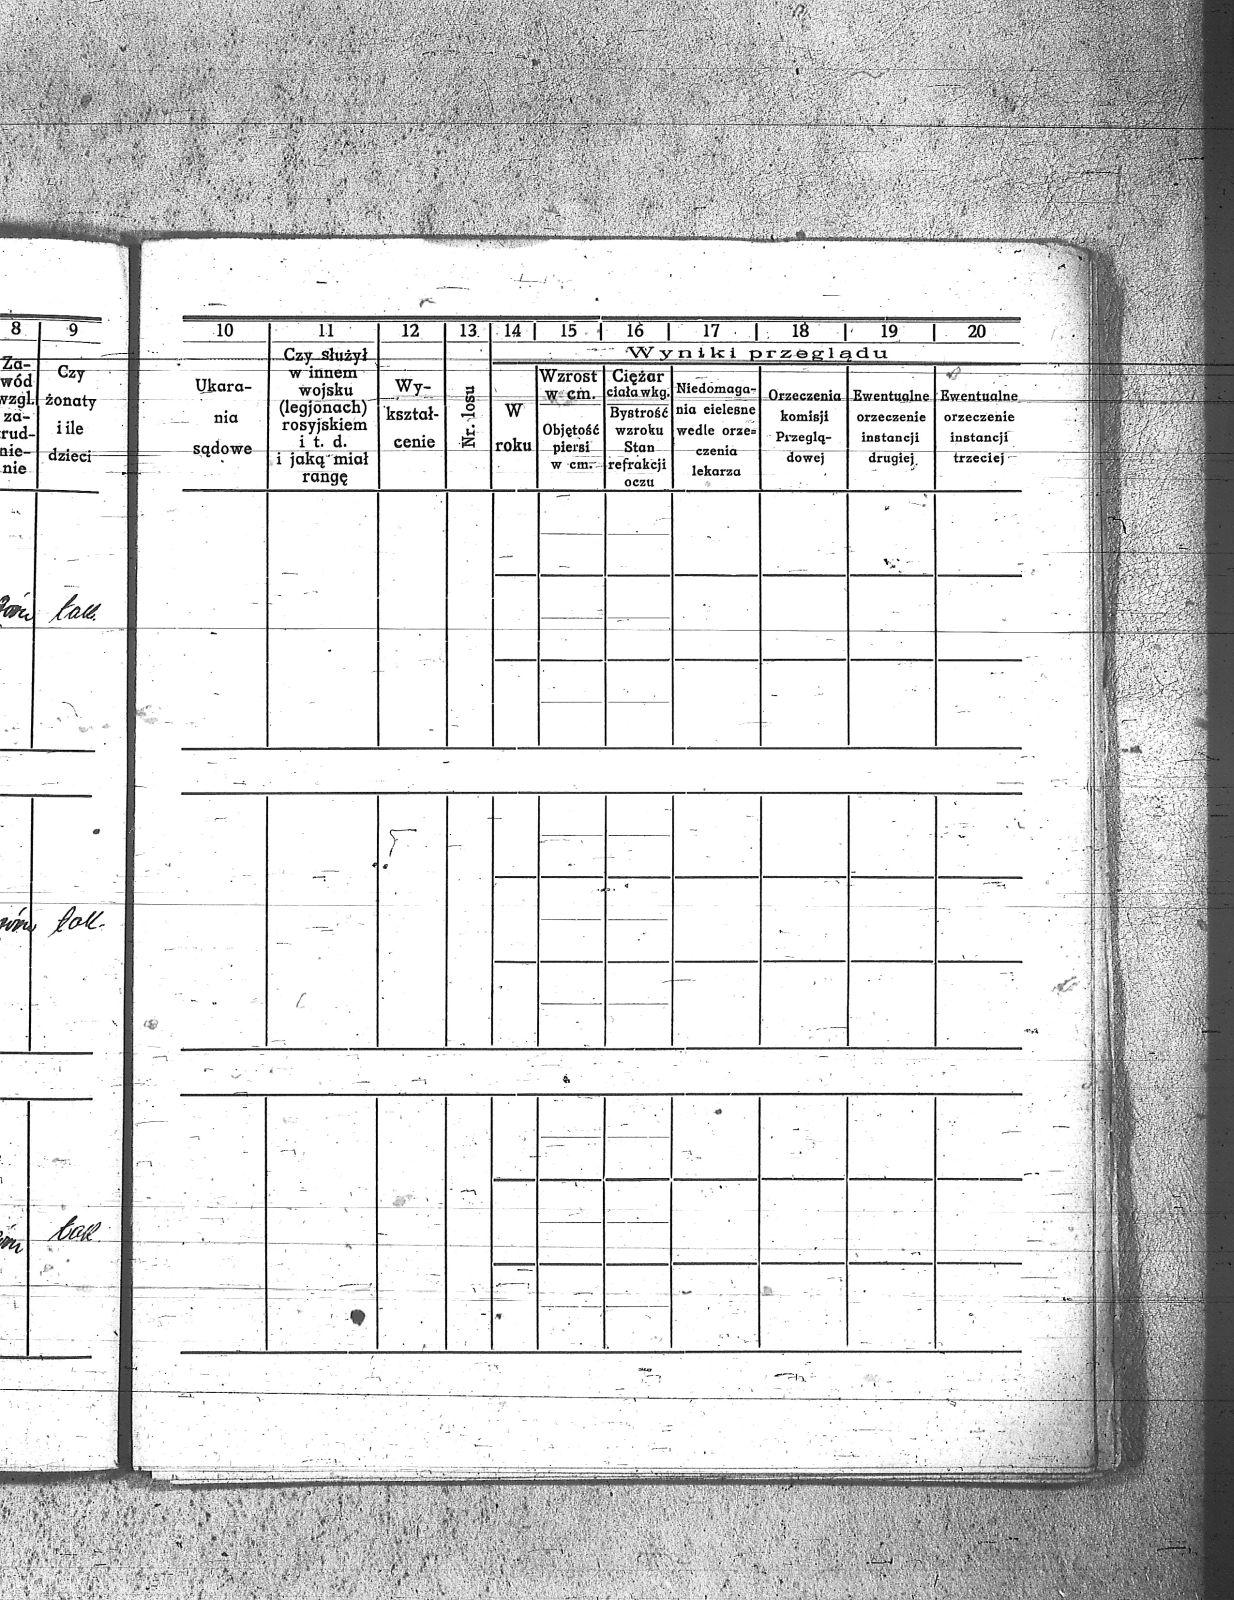 8 9 10 11 12 13 14 15 16 17 18 19 20
Wyniki przeglądu
Za-
wód
wzgl.
za-
rud-
nie-
nie
Czy
żonaty
i ile
dzieci
Ukara-
nia
sądowe
Czy służył
w innem
wojsku
(legjonach)
rosyjskiem
i t. d.
i jaką miał
rangę
Wy-
kształ-
cenie
Nr. losu
W
roku
Wzrost
w cm.
Objętość
piersi
w cm.
Ciężar
ciała w kg.
Bystrość
wzroku
Stan
refrakcji
oczu
Niedomaga-
nia cielesne
wedle orze=
czenia
lekarza
Orzeczenia
komisji
Przeglą-
dowej
Ewentualne
orzeczenie
instancji
drugiej
Ewentualne
orzeczenie
instancji
trzeciej
tak.
tak.
tak.